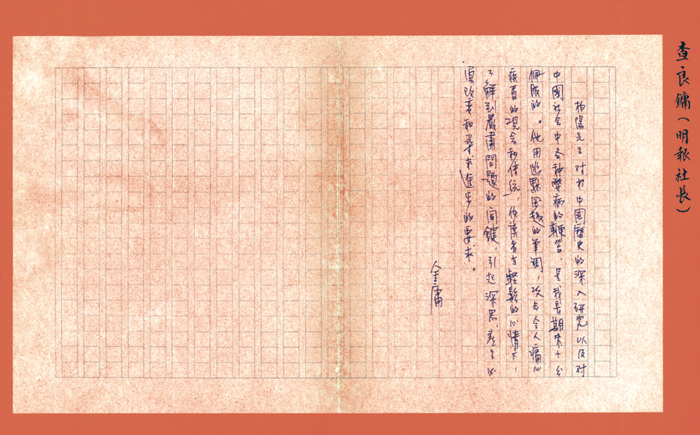 查良鏞(明報社長)
柏陽先生對於中國歷史的深入研究以及對
中國社會中各種弊病的鞭笞,是我長期來十分
佩服的。他用幽默的筆調,攻擊令人痛心
疾首的觀念和傳統,使讀者在輕鬆的心情下,
了解到嚴肅問題的關鍵,引起深思,產生必
須改革和尋求進步的要求。
金庸